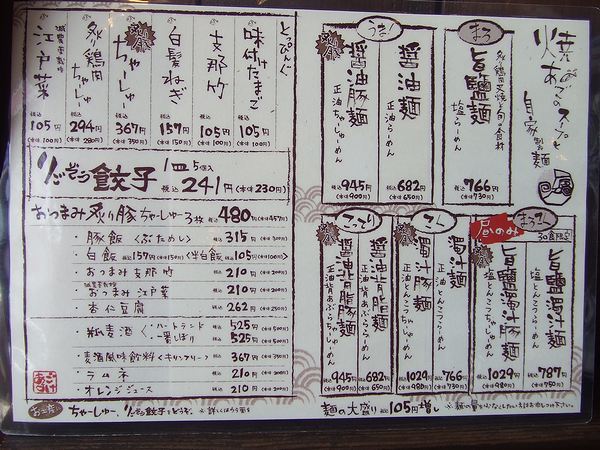 焼あごのスープと
自家製麺
まろ
旨鹽麺
塩らーめん
766円
(本体730円)
うまっ
醤油麺
正油らーめん
税込682円
(本体650円)
醤油豚麺
正油ちゃーしゅーめん
税込945円
(本体900円)
とっぴんぐ
味付けたまご
税込105円
(本体100円)
支那竹
税込105円
(本体100円)
白髪ねぎ
税込157円
(本体150円)
炙豚ちゃーしゅー
税込367円
(本体350円)
炙り鶏肉ちゃーしゅー
税込294円
(本体280円)
減農薬栽培
江戸菜
税込105円
(本体100円)
りゅうぞう餃子
1皿5個入
税込241円(本体230円)
おつまみ炙り豚ちゃーしゅー3枚 税込480円(本体457円)
・豚飯<ぶためし> 税込315円(本体300円)
・白飯 税込157円(本体150円)<半白飯 税込105円(本体100円)>
・おつまみ支那竹 税込210円(本体200円)
減農薬栽培
・おつまみ江戸菜 税込210円(本体200円)
・杏仁豆腐 税込262円(本体250円)
・瓶麦酒<・ハートランド 税込525円(本体500円)
・一番しぼり 税込525円(本体500円)
・麦酒風味飲料<キリンフリー> 税込367円(本体350円)
・ラムネ 税込210円(本体200円)
・オレンジジュース 税込210円(本体200円)
昼のみ
30食限定
旨鹽濁汁麺
塩とんこつらーめん
税込787円
(本体750円)
旨鹽濁汁豚麺
塩とんこつちゃーしゅーめん
税込1029円
(本体980円)
濁汁麺
正油とんこつらーめん
税込766円
(本体730円)
濁汁豚麺
正油とんこつちゃーしゅーめん
税込1029円
(本体980円)
こってり
醤油背脂麺
正油背あぶららーめん
税込682円
(本体650円)
醤油背脂豚麺
正油背あぶらちゃーしゅーめん
税込945円
(本体900円)
麺の大盛り 税込105円増し
ちゃーしゅー、りゅうぞう餃子をどうぞ。